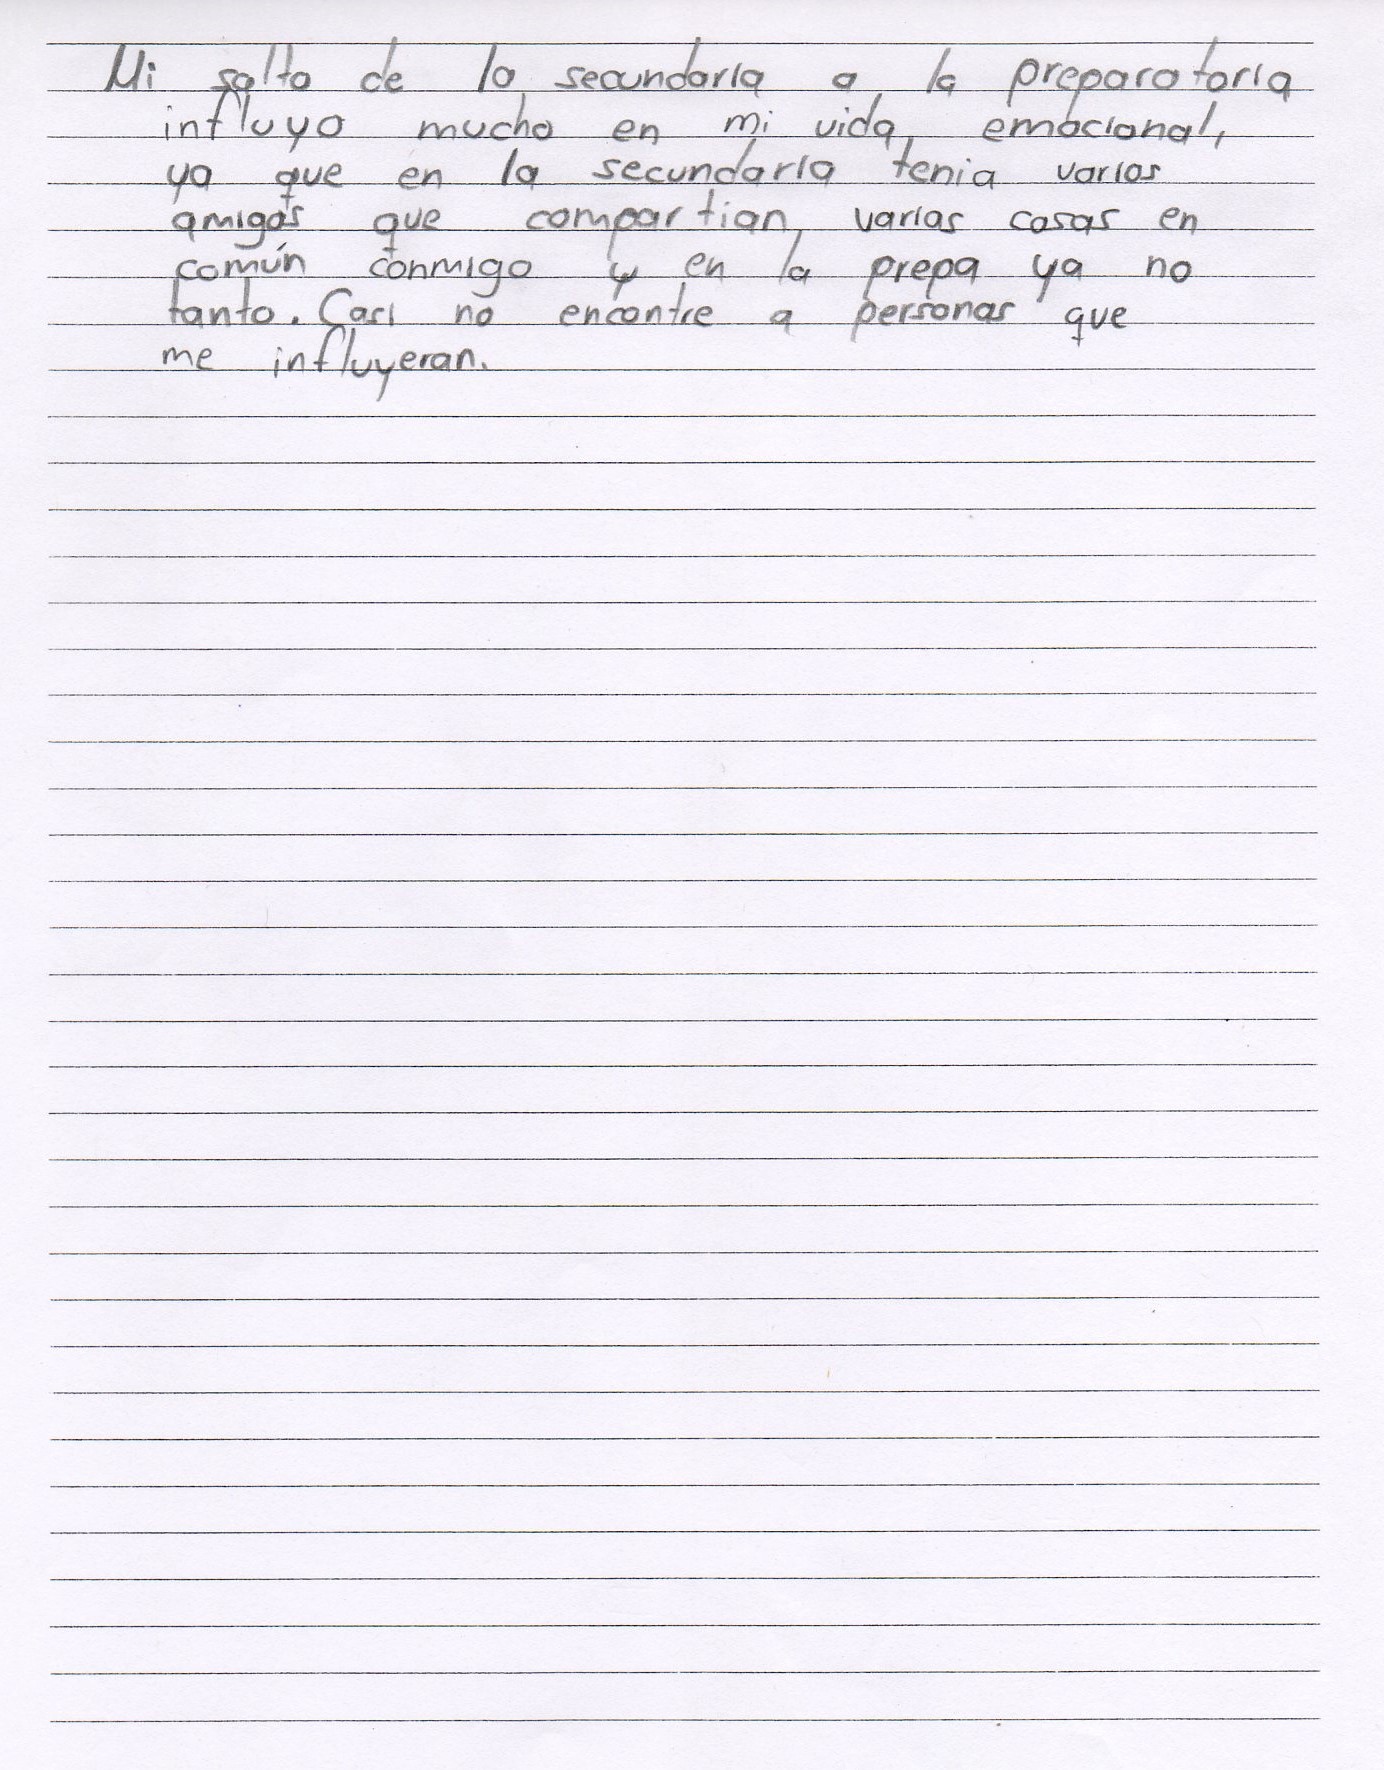 Mi salto de la secundaria a la preparatoria
influyo mucho en mi vida emocional,
ya que en la secundaria tenia varios
amigos que compartian varias cosas en
común conmigo y en la prepa ya no
tanto. Casi no encontre a personas que
me influyeran.